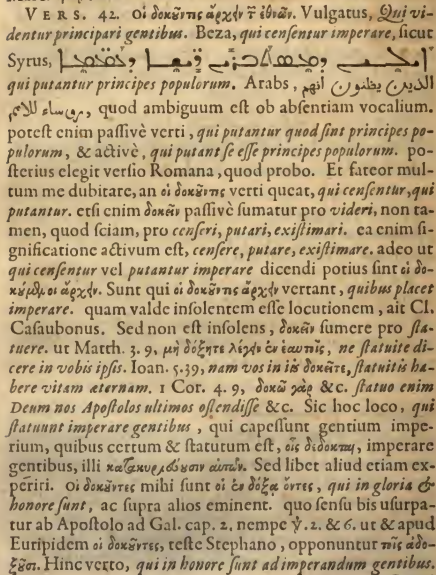 VERS. 42. Οἱ δοκοῦντες ἄρχειν τ̃ ἐθνῶν. Vulgatus, Qui vi-
dentur principari gentibus. Beza, qui censentur imperare, sicut
Syrus, ܐܝܠܝܢ ܕܡܣܬܒܪܝܢ ܪܫܐ ܕܥܡܡܐ
qui putantur principes populorum. Arabs, الذين يظنون أنهم
روساء للامم, quod ambiguum est ob absentiam vocalium.
potest enim passivè verti, qui putantur quod sint principes po-
pulorum, & activè, qui putant se esse principes populorum. po-
sterius elegit versio Romana, quod probo. Et fateor mul-
tum me dubitare, an οἱ δοκοῦντες verti queat, qui censentur, qui
putantur. etsi enim δοκεῖν passivè sumatur pro videri, non ta-
men, quod sciam, pro censeri, putari, existimari. ea enim si-
gnificatione activum est, censere, putare, existimare. adeo ut
qui censentur vel putantur imperare dicendi potius sint οἱ δο-
κούμενοι ἄρχειν. Sunt qui οἱ δοκοῦντες ἄρχειν vertant, quibus placet
imperare. quam valde insolentem esse locutionem, ait Cl.
Casaubonus. Sed non est insolens, δοκεῖν sumere pro sta-
tuere. ut Matth. 3. 9, μὴ δόξητε λέγειν ἐν ἑαυτοῖς, ne statuite di-
cere in vobis ipsis. Ioan. 5.39, nam vos in iis δοκεῖτε, statuitis ha-
bere vitam æternam. 1 Cor. 4. 9, δοκῶ γὰρ &c. statuo enim
Deum nos Apostolos ultimos ostendisse &c. Sic hoc loco, qui
statuunt imperare gentibus, qui capessunt gentium impe-
rium, quibus certum & statutum est, οἷς δέδοκται, imperare
gentibus, illi κατακυριεύουσιν αὐτῶν. Sed libet aliud etiam ex-
periri. Οἱ δοκοῦντες mihi sunt οἱ ἐν δόξᾳ ὄντες, qui in gloria &
honore sunt, ac supra alios eminent. quo sensu bis usurpa-
tur ab Apostolo ad Gal. cap. 2. nempe ℣. 2. & 6. ut & apud
Euripidem οἱ δοκοῦντες, teste Stephano, opponuntur τοῖς ἀδο-
ξοῦσι. Hinc verto, qui in honore sunt ad imperandum gentibus.